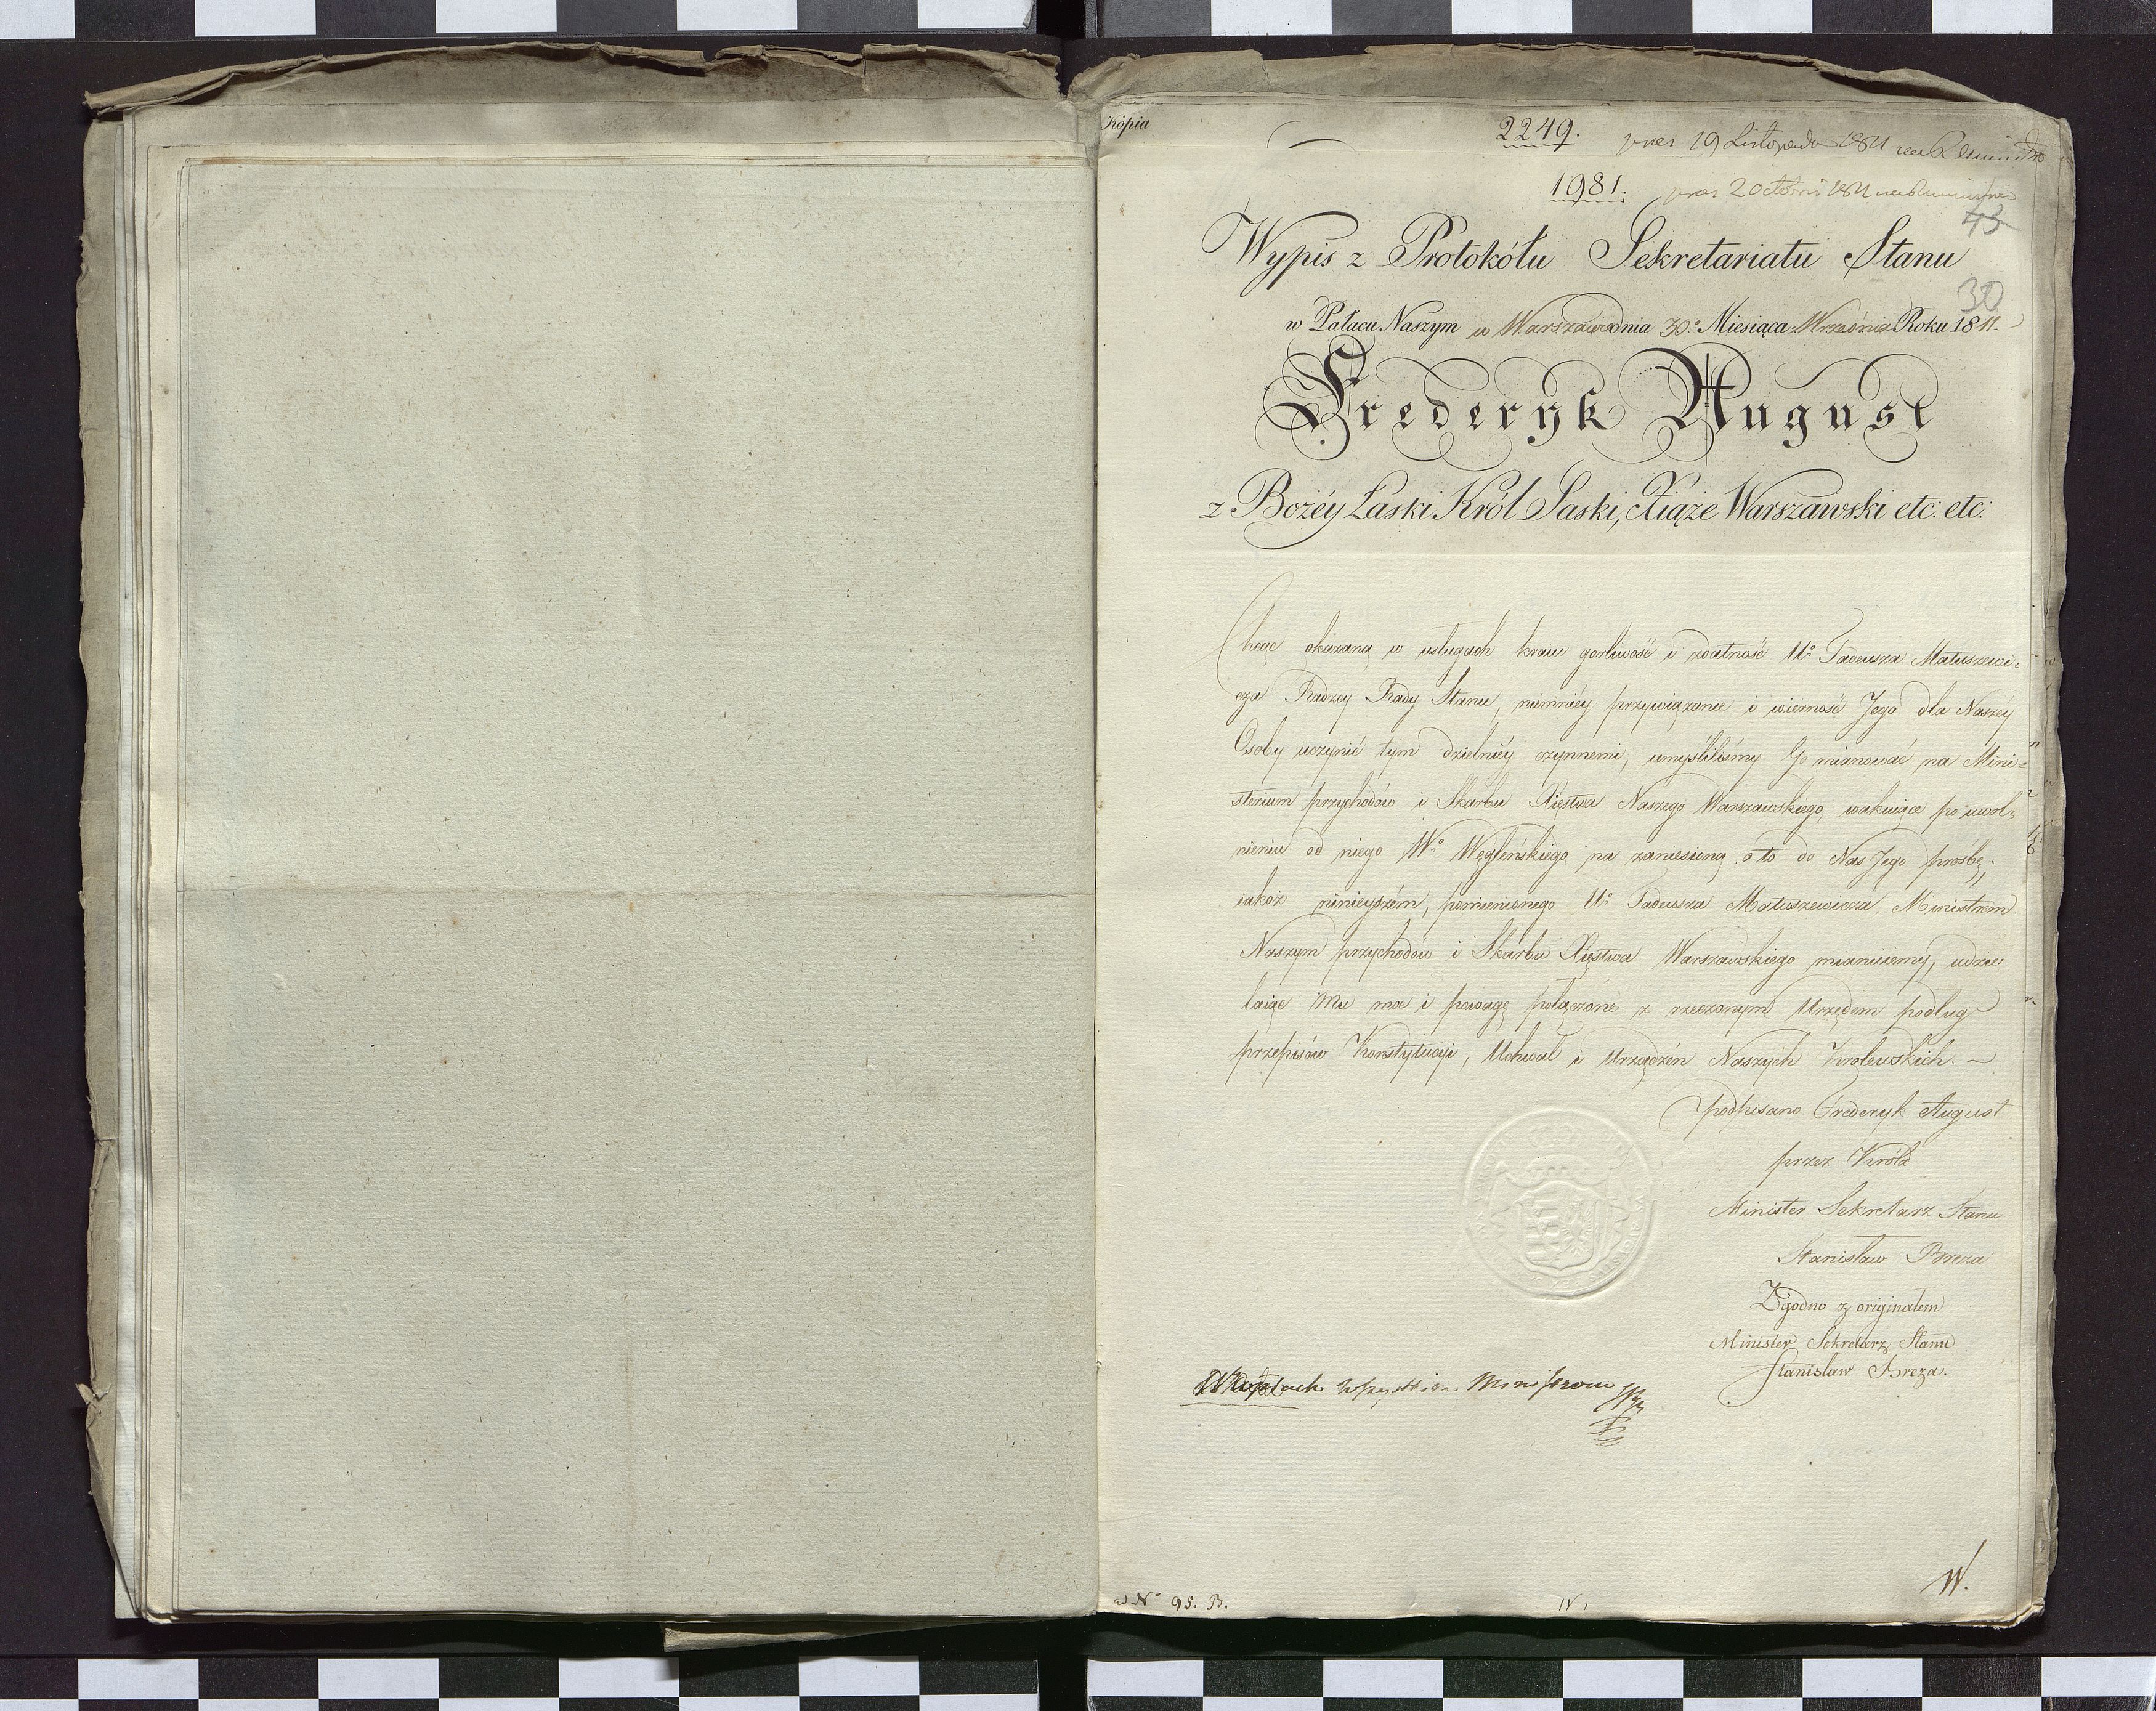 Kopia
2249. pres 19 Listopada 1811
1981. pres 2 Octobris 1811
43
Wypis z Protokółu Sekretariatu Stanu
30
w Pałacu Naszym w Warszawie dnia 30.° Miesiąca Września Roku 1811.
Frederyk August
z Bożéy Łaski Król Saski, Xiąże Warszawski etc: etc:
Chcąc okazaną w usługach kraiu gorliwość i zdatność Ur.° Tadeusza Matuszewi=
cza Radzcy Rady Stanu, niemniéy przywiązanie i wierność Jego dla Naszéy
Osoby uczynić tym dzielniéy czynnemi, umyśliliśmy Go mianować na Mini=
sterium przychodów i Skarbu Xięstwa Naszego Warszawskiego, wakuiące po uwol=
nieniu od niego W.° Węgleńskiego na zaniesioną o to do Nas Jego prosbę;
iakoż ninieyszém, pomienionego Ur.° Tadeusza Matuszewicza, Ministrem
Naszym przychodów i Skarbu Xięstwa Warszawskiego mianuiemy, udzie
laiąc Mu moc i powagę połączone z rzeczonym Urzędem podług
przepisów Konstytucyi, Uchwał i Urządzeń Naszych Krolewskich. —
podpisano Frederyk August
przez Króla
Minister Sekretarz Stanu
Stanisław Breza
Zgodno z originałem
Minister Sekretarz Stanu
Stanisław Breza.
wszystkim Ministrom
W.
ad N.° 95. B.